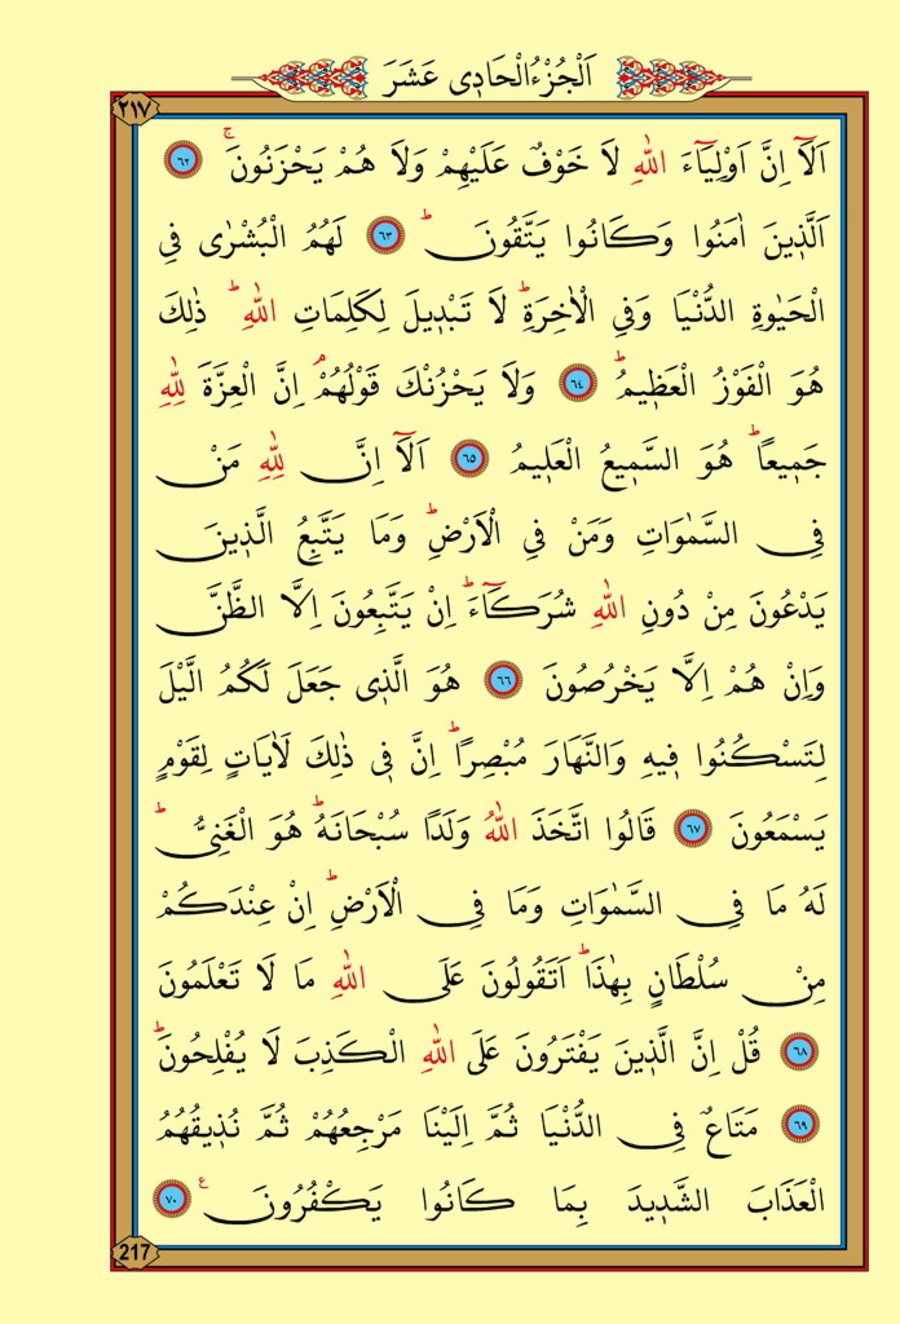 اَلْجُزْءُ الْحَادِى عَشَرَ
٢١٧
اَلَٓا اِنَّ اَوْلِيَٓاءَ اللّٰهِ لَا خَوْفٌ عَلَيْهِمْ وَلَا هُمْ يَحْزَنُونَۚ ﴿٦٢﴾
اَلَّذ۪ينَ اٰمَنُوا وَكَانُوا يَتَّقُونَۜ ﴿٦٣﴾ لَهُمُ الْبُشْرٰى فِي
الْحَيٰوةِ الدُّنْيَا وَفِي الْاٰخِرَةِۜ لَا تَبْد۪يلَ لِكَلِمَاتِ اللّٰهِۜ ذٰلِكَ
هُوَ الْفَوْزُ الْعَظ۪يمُۜ ﴿٦٤﴾ وَلَا يَحْزُنْكَ قَوْلُهُمْۢ اِنَّ الْعِزَّةَ لِلّٰهِ
جَم۪يعًاۜ هُوَ السَّم۪يعُ الْعَل۪يمُ ﴿٦٥﴾ اَلَٓا اِنَّ لِلّٰهِ مَنْ
فِي السَّمٰوَاتِ وَمَنْ فِي الْاَرْضِۜ وَمَا يَتَّبِعُ الَّذ۪ينَ
يَدْعُونَ مِنْ دُونِ اللّٰهِ شُرَكَٓاءَۜ اِنْ يَتَّبِعُونَ اِلَّا الظَّنَّ
وَاِنْ هُمْ اِلَّا يَخْرُصُونَ ﴿٦٦﴾ هُوَ الَّذ۪ى جَعَلَ لَكُمُ الَّيْلَ
لِتَسْكُنُوا ف۪يهِ وَالنَّهَارَ مُبْصِرًاۜ اِنَّ ف۪ى ذٰلِكَ لَاٰيَاتٍ لِقَوْمٍ
يَسْمَعُونَ ﴿٦٧﴾ قَالُوا اتَّخَذَ اللّٰهُ وَلَدًا سُبْحَانَهُۜ هُوَ الْغَنِيُّۜ
لَهُ مَا فِي السَّمٰوَاتِ وَمَا فِي الْاَرْضِۜ اِنْ عِنْدَكُمْ
مِنْ سُلْطَانٍ بِهٰذَاۜ اَتَقُولُونَ عَلَى اللّٰهِ مَا لَا تَعْلَمُونَ
﴿٦٨﴾ قُلْ اِنَّ الَّذ۪ينَ يَفْتَرُونَ عَلَى اللّٰهِ الْكَذِبَ لَا يُفْلِحُونَۜ
﴿٦٩﴾ مَتَاعٌ فِي الدُّنْيَا ثُمَّ اِلَيْنَا مَرْجِعُهُمْ ثُمَّ نُذ۪يقُهُمُ
الْعَذَابَ الشَّد۪يدَ بِمَا كَانُوا يَكْفُرُونَ ع ﴿٧٠﴾
217